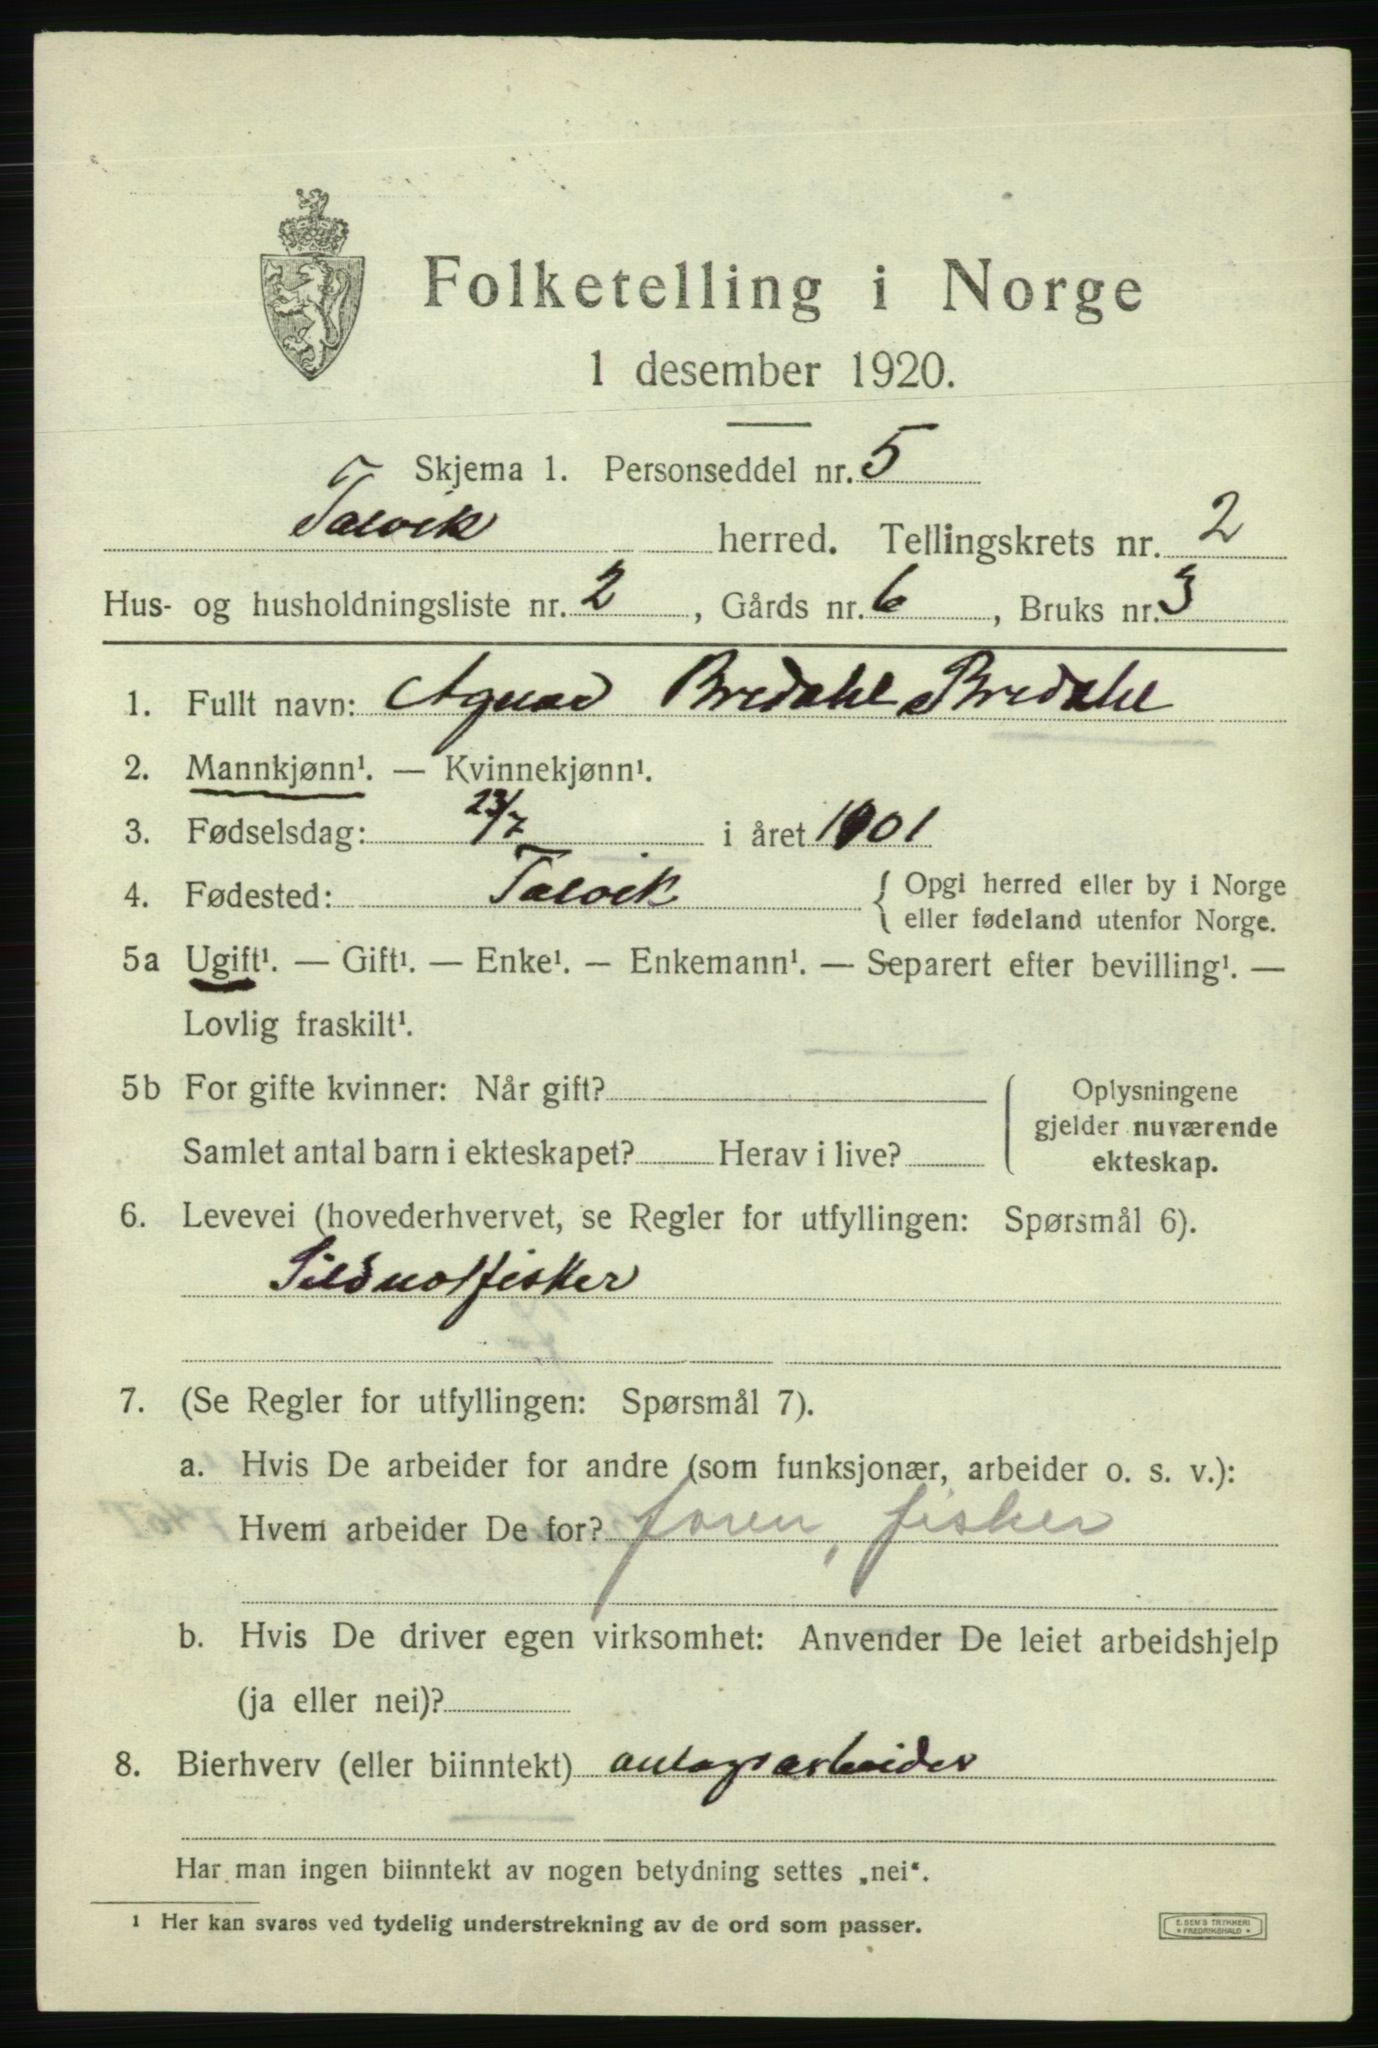 Folketelling i Norge
1 desember 1920.
Skjema 1. Personseddel nr. 5
Talvik herred. Tellingskrets nr. 2
Hus- og husholdningsliste nr. 2, Gårds nr. 6, Bruks nr. 3
1. Fullt navn: Bredahl Bredahl
2. Mannkjønn¹. — Kvinnekjønn¹.
3. Fødselsdag: 23/7 i året 1901
4. Fødested: Talvik { Opgi herred eller by i Norge
eller fødeland utenfor Norge.
5a Ugift¹. — Gift¹. — Enke¹. — Enkemann¹. — Separert efter bevilling¹. —
Lovlig fraskilt¹.
5b For gifte kvinner: Når gift?
Samlet antal barn i ekteskapet? Herav i live?
Oplysningene
gjelder nuværende
ekteskap.
6. Levevei (hovederhvervet, se Regler for utfyllingen: Spørsmål 6).
Sildnotfisker
7. (Se Regler for utfyllingen: Spørsmål 7).
a. Hvis De arbeider for andre (som funksjonær, arbeider o. s. v.):
Hvem arbeider De for? faren, fisker
b. Hvis De driver egen virksomhet: Anvender De leiet arbeidshjelp
(ja eller nei)?
8. Bierhverv (eller biinntekt) anlægsarbeider
Har man ingen biinntekt av nogen betydning settes „nei“.
¹ Her kan svares ved tydelig understrekning av de ord som passer.
E. SEM'S TRYKKERI
* FREDRIKSHALD *